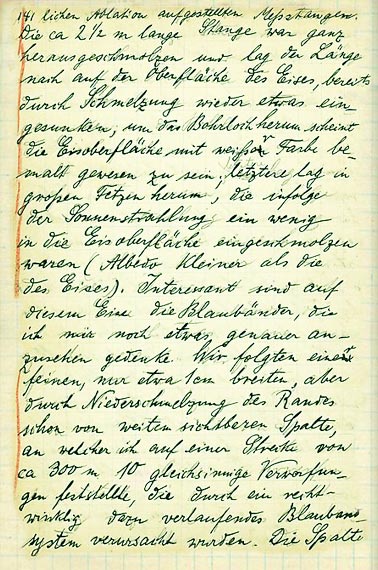 141 lichen Ablation aufgestellten Messstangen.
Die ca 2½ m lange Stange war ganz
herausgeschmolzen und lag der Länge
nach auf der Oberfläche des Eises, bereits
durch Schmelzung wieder etwas ein-
gesunken; um das Bohrloch herum scheint
die Eisoberfläche mit weisser Farbe be-
malt gewesen zu sein; letztere lag in
großen Fetzen herum, die infolge
der Sonnenstrahlung ein wenig
in die Eisoberfläche eingeschmolzen
waren (Albedo kleiner als die
des Eises). Interessant sind auf
diesem Eise die Blaubänder, die
ich mir noch etwas genauer an-
zusehen gedenke. Wir folgten einer
feinen, nur etwa 1cm breiten, aber
durch Niederschmelzung des Randes
schon von weitem sichtbaren Spalte,
an welcher ich auf einer Strecke von
ca 300 m 10 gleichsinnige Verwerfun-
gen feststellte, die durch ein recht-
winklig dazu verlaufendes Blauband-
system verursacht wurden. Die Spalte